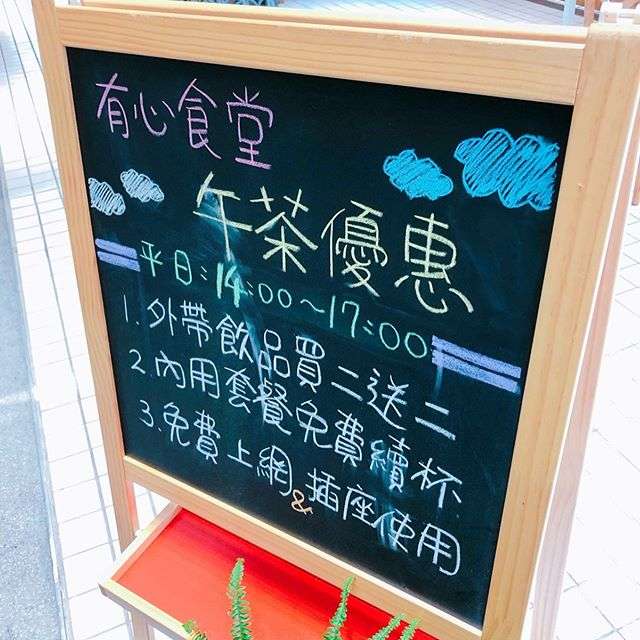 有心食堂
午茶優惠
平日:14:00~17:00
1.外帶飲品買二送二
2.內用套餐免費續杯
3.免費上網&插座使用